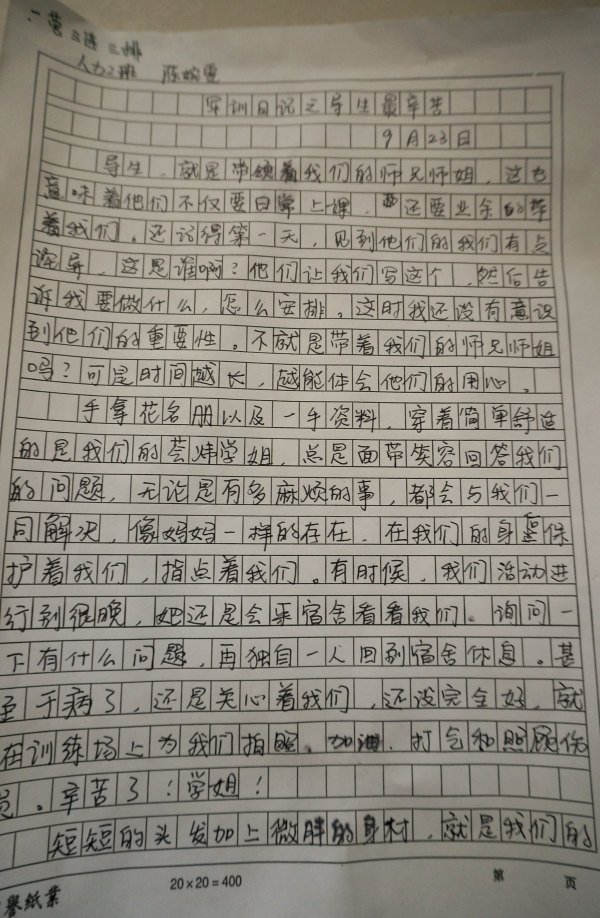 一营三连三排
人力2班 陈婉雯
军训日记之导生最辛苦
9月23日
导生，就是带领着我们的师兄师姐，这也
意味着他们不仅要日常上课，还要业余的带
着我们。还记得第一天，见到他们的我们有点
诧异，这是谁啊？他们让我们写这个，然后告
诉我要做什么，怎么安排。这时我还没有意识
到他们的重要性。不就是带着我们的师兄师姐
吗？可是时间越长，越能体会他们的用心。
手拿花名册以及一手资料，穿着简单舒适
的是我们的芸炜学姐，总是面带笑容回答我们
的问题，无论是有多麻烦的事，都会与我们一
同解决，像妈妈一样的存在，在我们的身保
护着我们，指点着我们。有时候，我们活动进
行到很晚，她还是会来宿舍看看我们。询问一
下有什么问题，再独自一人回到宿舍休息。甚
至于病了，还是关心着我们，还没完全好，就
在训练场上为我们拍照、加油、打气和照顾伤
员。辛苦了！学姐！
短短的头发加上微胖的身材，就是我们的
誉纸业
20×20=400
第 页